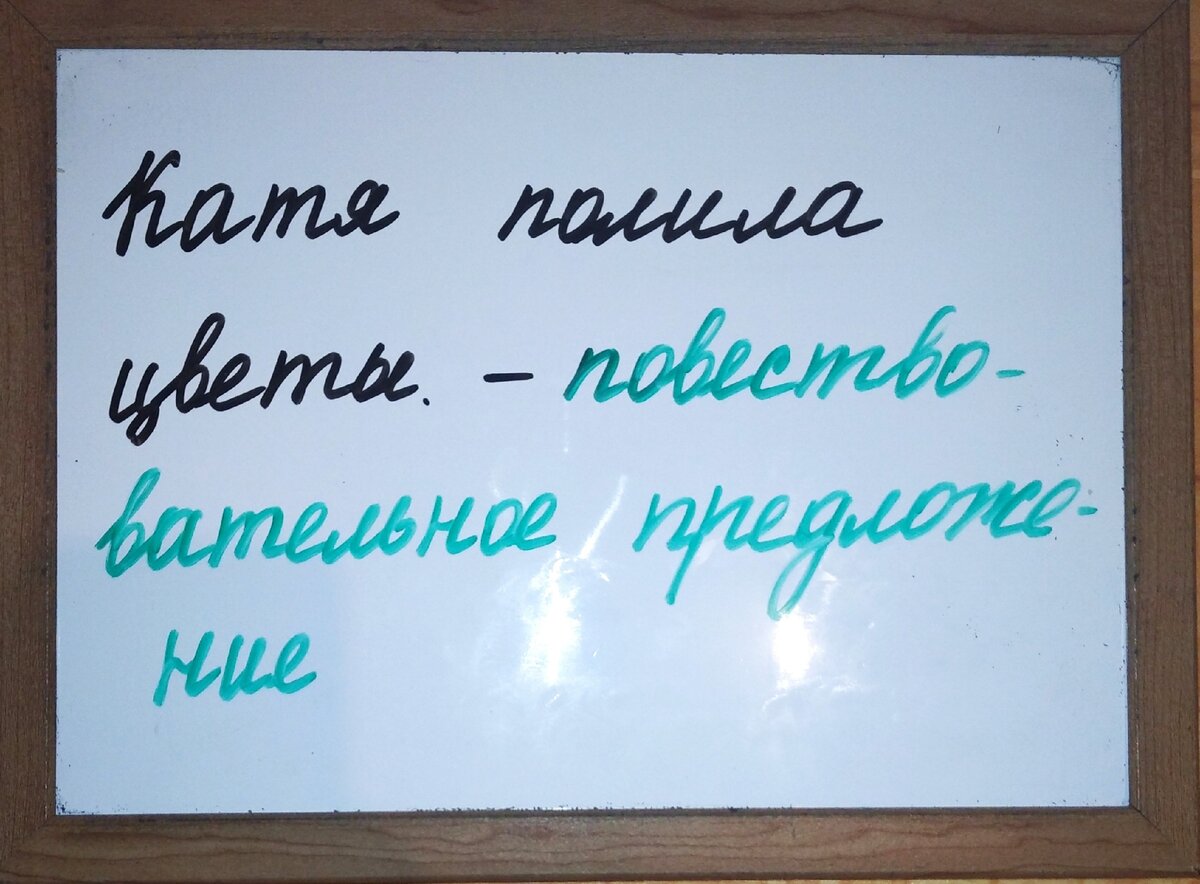 Катя полила
цветы. – повество-
вательное предложе-
ние